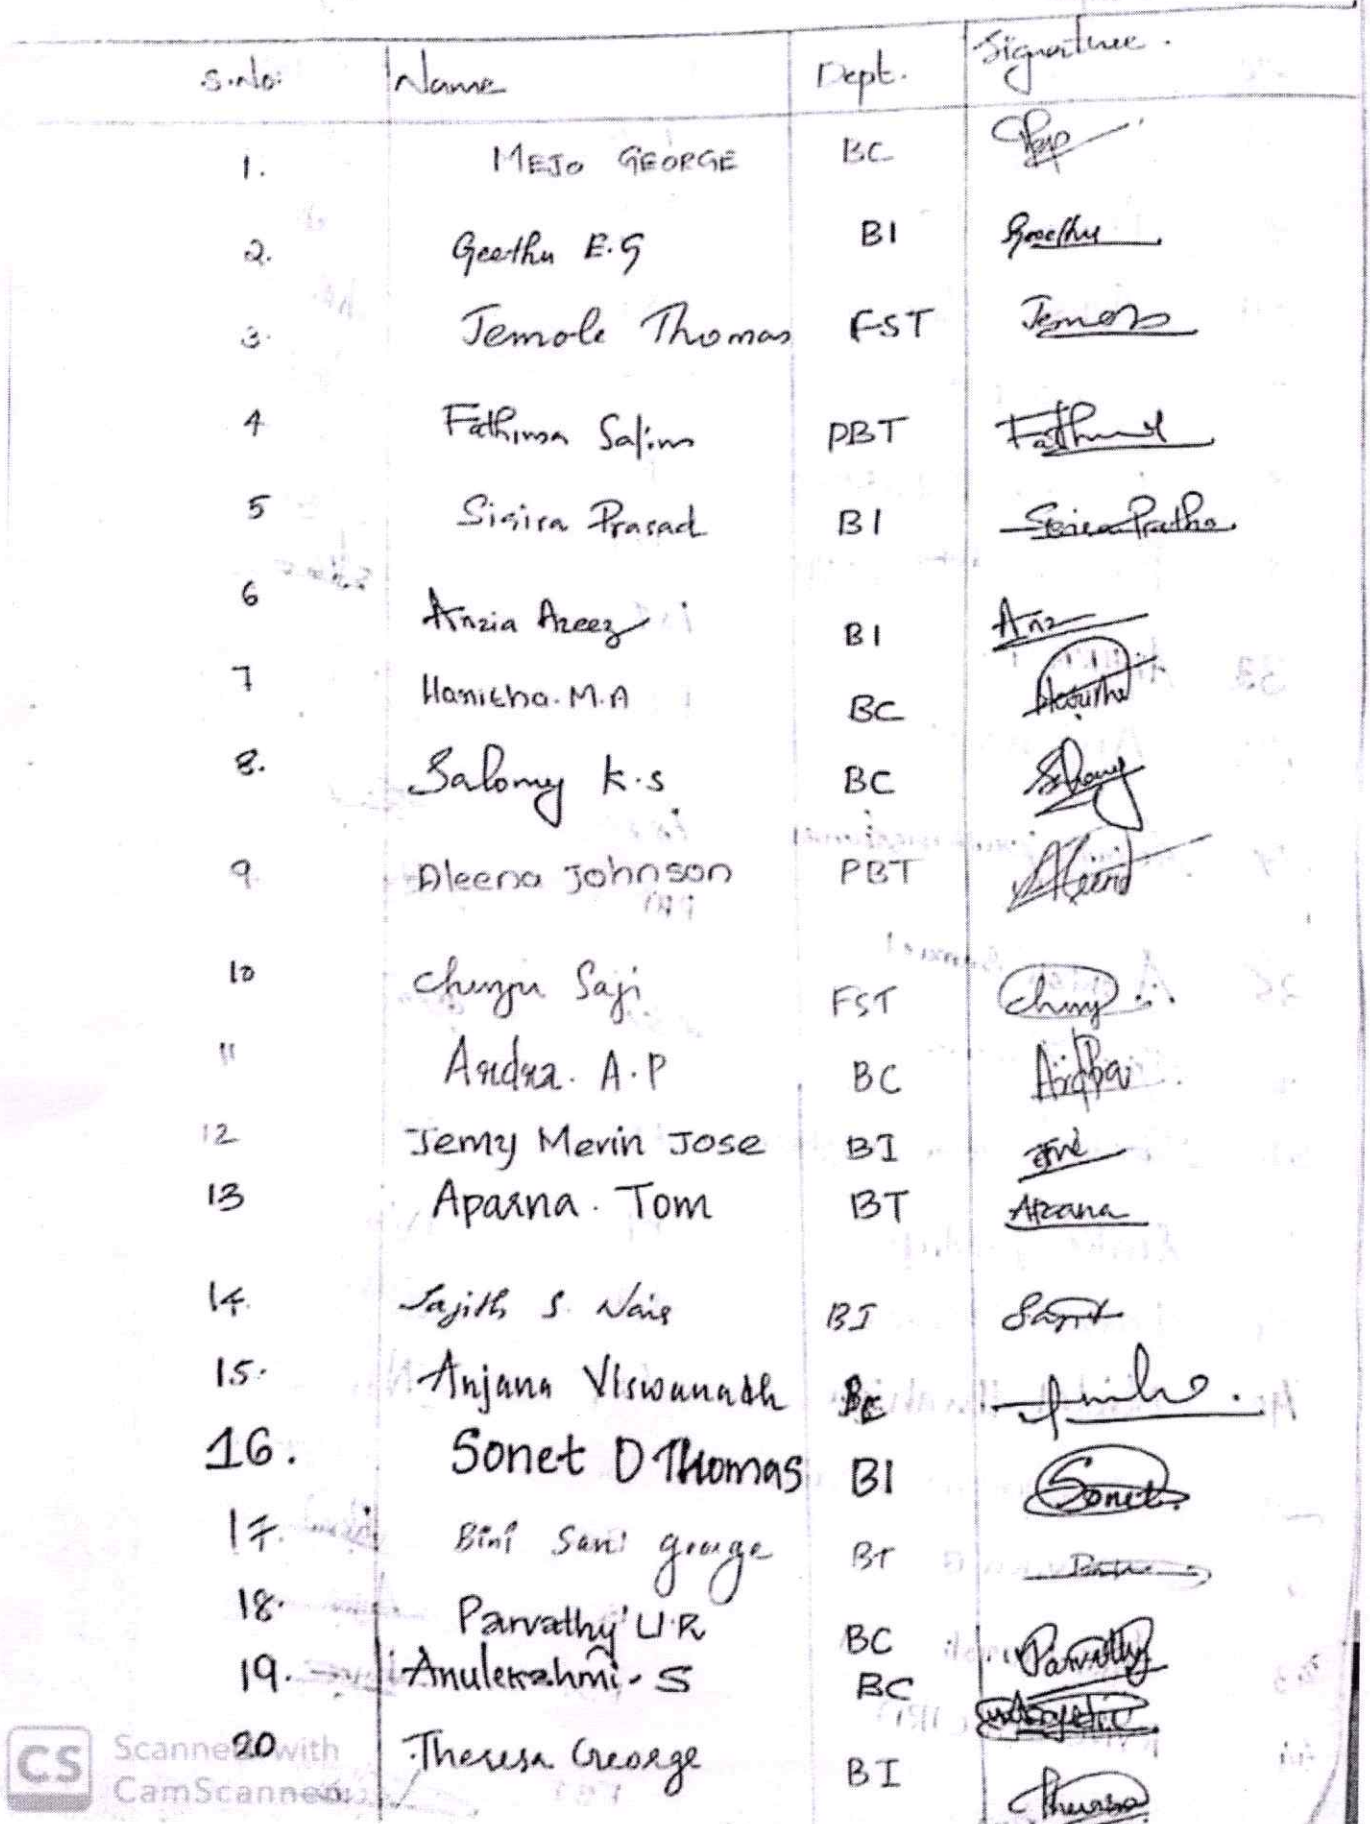 S.No. Name Dept. Signature.
1. MEJO GEORGE BC
2. Geethu E.G BI Geethu
3. Jemole Thomas FST Jemole
4 Fathima Salim PBT Fathima
5 Sisira Prasad BI
6 Anzia Azeez BI Anz
7 Hanitha. M.A BC
8. Salomy K.S BC Salomy
9. Aleena Johnson PBT Aleena
10 Chinju Saji FST
11 Ardra. A.P BC Ardra
12 Jemy Merin Jose BI
13 Aparna. Tom BT
14. Sajith S. Nair BI Sajith
15. Anjana Viswanadh BC
16. Sonet D Thomas BI Sonet
17. Bini Sani george BT
18. Parvathy U.R BC Parvathy
19. Anulekshmi. S BC
20 Theresa George BI Theresa
Scanned with
CS CamScanner